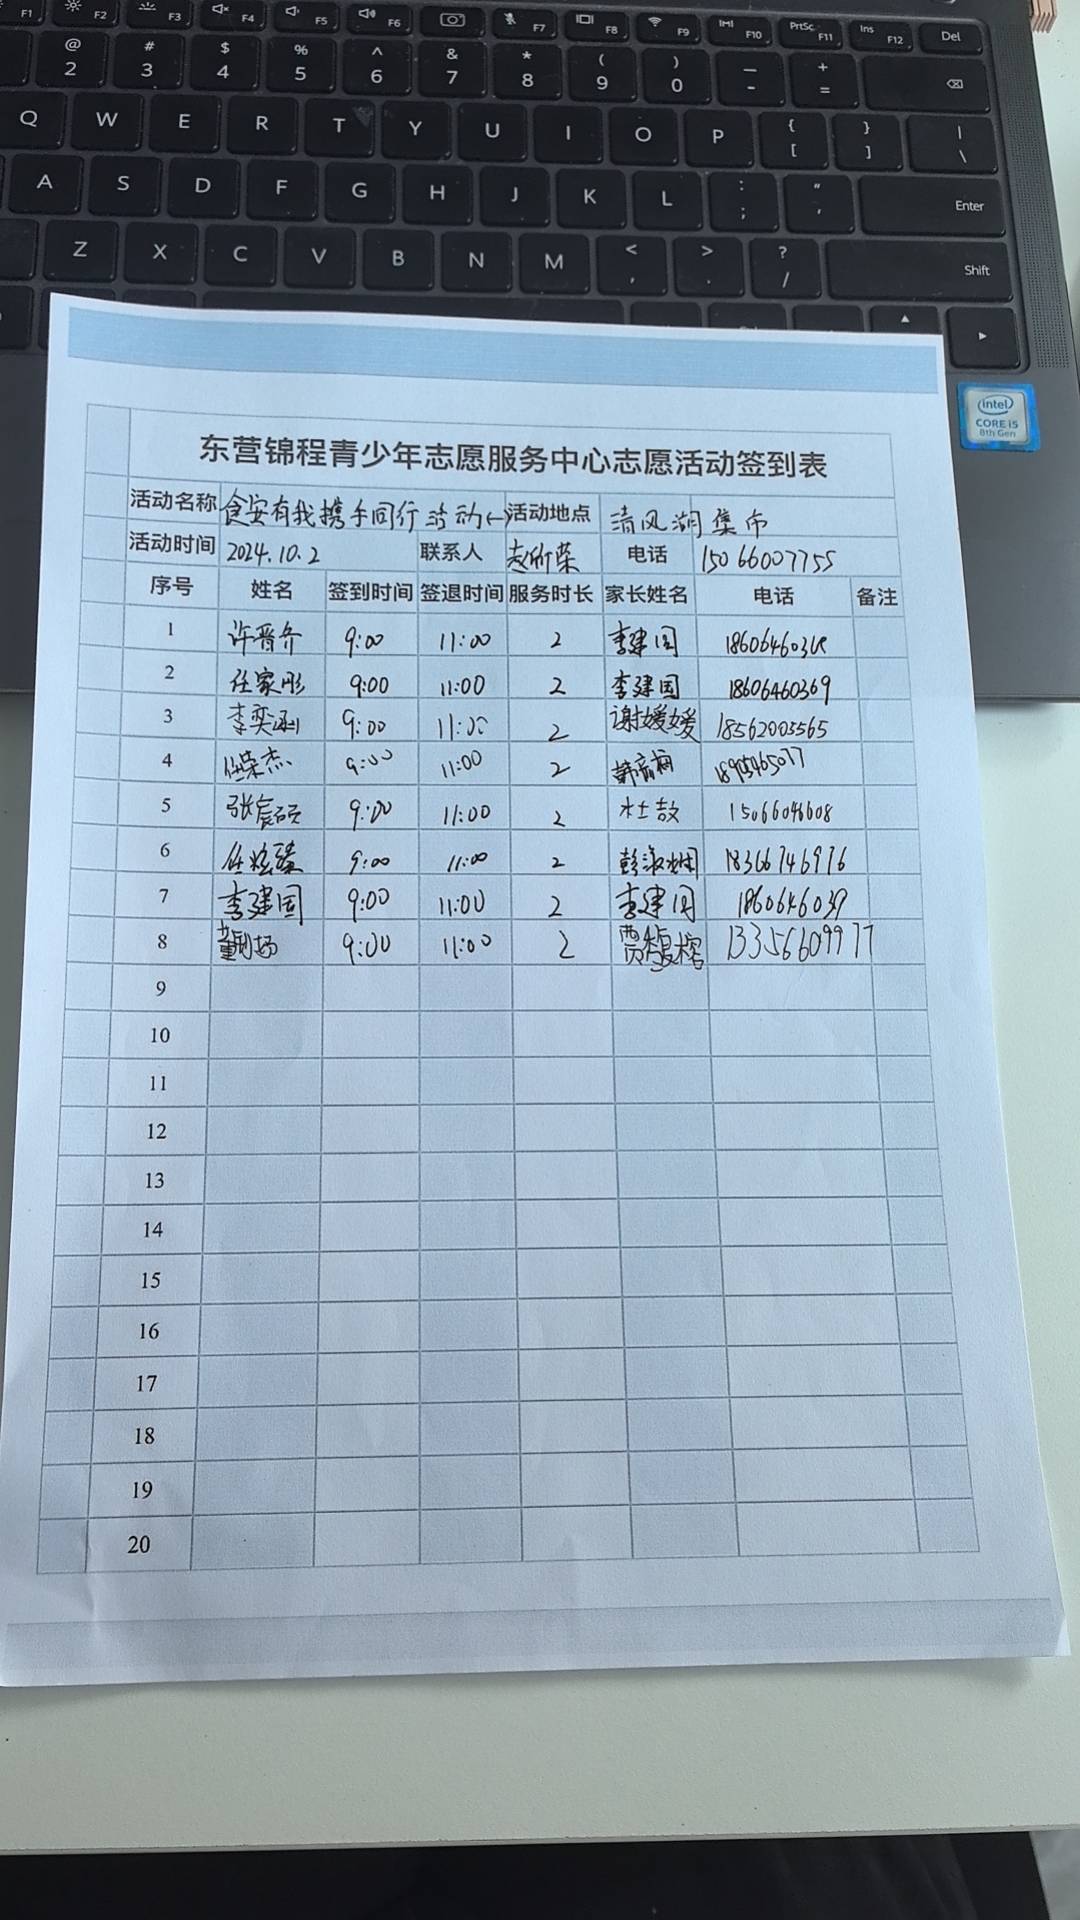 F1 F2 F3 F4 F5 F6 F7 F8 F9 F10 PrtSc F11 Ins F12 Del
@ 2 # 3 $ 4 % 5 ^ 6 & 7 * 8 ( 9 ) 0 — - + =
Q W E R T Y U I O P { [ } ] | \
A S D F G H J K L : ; " ' Enter
Z X C V B N M < , > . ? / Shift
intel
CORE i5
8th Gen
东营锦程青少年志愿服务中心志愿活动签到表
活动名称 食安有我携手同行活动 活动地点 清风湖集市
活动时间 2024.10.2 联系人 电话 15066007755
序号 姓名 签到时间 签退时间 服务时长 家长姓名 电话 备注
1 许晋齐 9:00 11:00 2 李建国
2 任家彤 9:00 11:00 2 李建国 18606460369
3 李奕涵 9:00 11:00 2 谢媛媛 18562003565
4 任荣杰 9:00 11:00 2 18905465077
5 张宸硕 9:00 11:00 2 15066046608
6 9:00 11:00 2 18366746976
7 李建国 9:00 11:00 2 李建国
8 9:00 11:00 2 13356609977
9
10
11
12
13
14
15
16
17
18
19
20